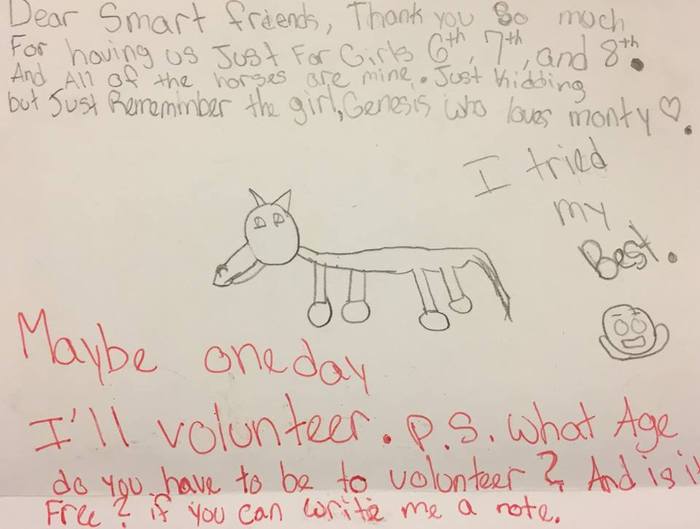 Dear Smart friends, Thank you So much
For having us Just For Girls 6th, 7th, and 8th.
And All of the horses are mine. Just kidding
but Just Rememimber the girl, Genesis who loves monty ♡.
I tried
my
Best.
Maybe one day
I'll volunteer. P.S. What Age
do you have to be to volunteer? And is it
Free? if you can write me a note.